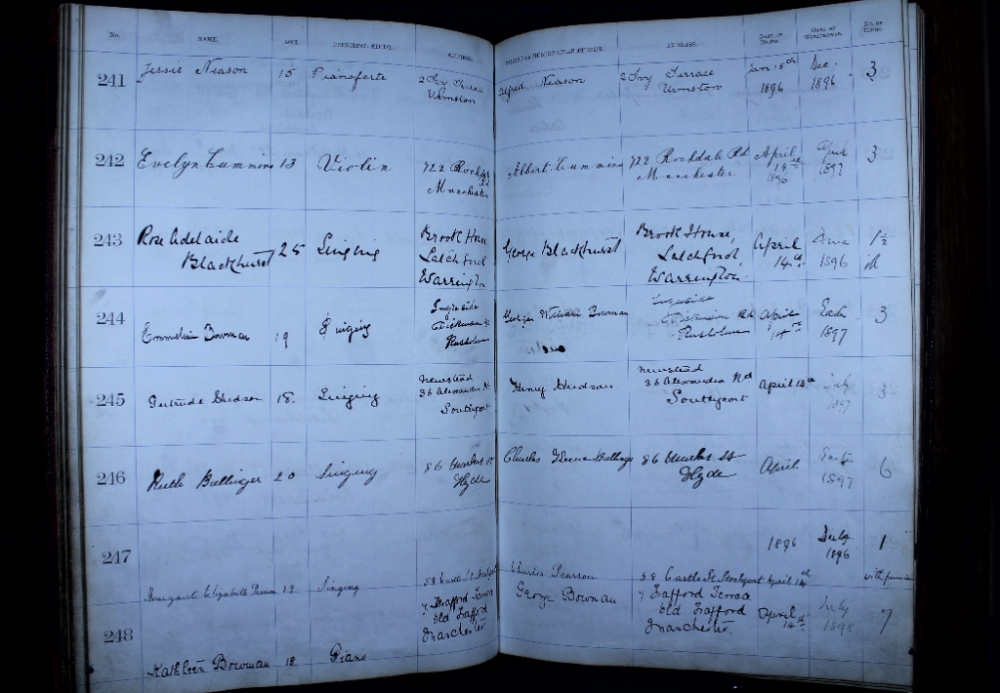 No. NAME. AGE. PRINCIPAL STUDY. ADDRESS. ADDRESS. DATE OF ENTRY. DATE OF No. OF TERMS.
241 Jessie Neason 15 Pianoforte 2 Ivy Terrace Alfred Neason 2 Ivy Terrace Jan 15th Dec. 3
Urmston Urmston 1896 1896
242 Evelyn Cummins 13 Violin 722 Rochdale Rd Albert Cummins 722 Rochdale Rd April April 3
Manchester Manchester 1896 1897
243 Rose Adelaide 25 Singing Brook House, George Blackhurst Brook House, April June 1½
Blackhurst Latchford Latchford, 14th 1896
Warrington Warrington.
244 Emmeline Bowman 19 Singing Ingleside George William Bowman Ingleside April 3
Dickenson Rd Dickenson Rd 14th 1897
Rusholme Rusholme
245 Gertrude Hudson 18. Singing Newstead Henry Hudson Newstead April 13th July 3
36 Alexandra Rd 36 Alexandra Rd 1897
Southport Southport
246 Ruth 20 Singing 86 St Charles 86 St April 6
Hyde Hyde 1897
247 1896 July 1
1896
Margaret Elizabeth Pearson 19. Singing 58 Castle St. Stockport Charles Pearson 58 Castle St Stockport April 14th
248 7 Trafford Terrace George Bowman 7 Trafford Terrace April July 7
Old Trafford Old Trafford 14th 1898
Manchester Manchester.
Kathleen Bowman 18. Piano